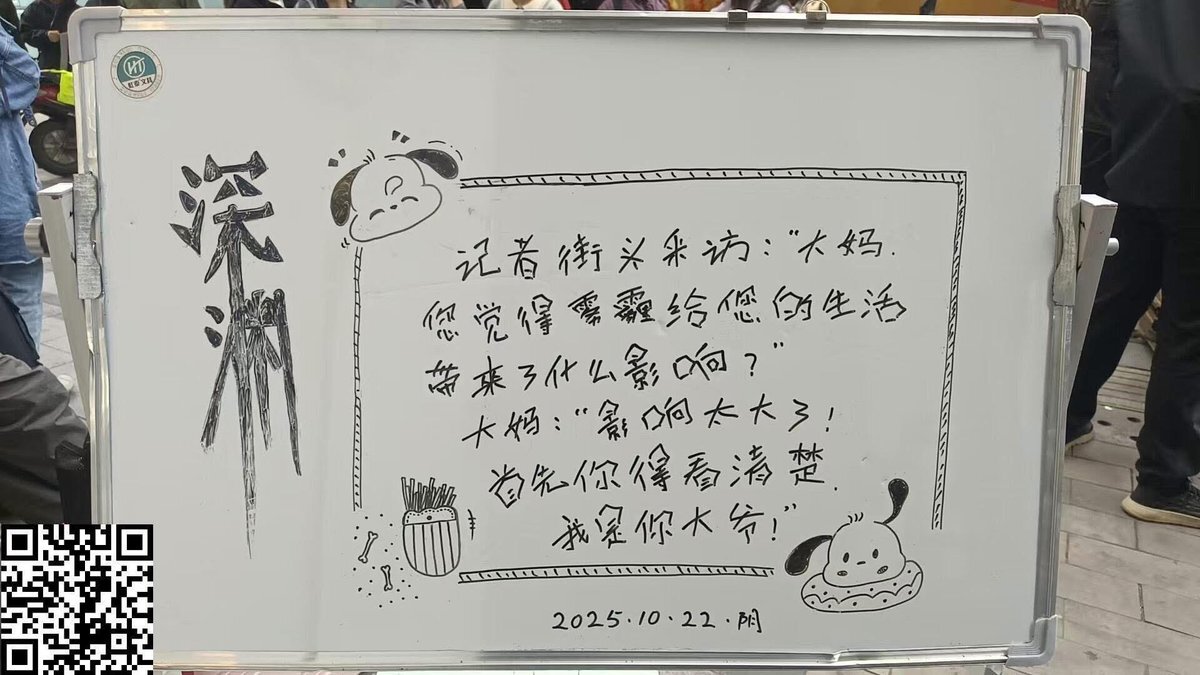 HT
深渊
记者街头采访：“大妈，
您觉得雾霾给您的生活
带来了什么影响？”
大妈：“影响太大了！
首先你得看清楚，
我是你大爷！”
2025.10.22.阴